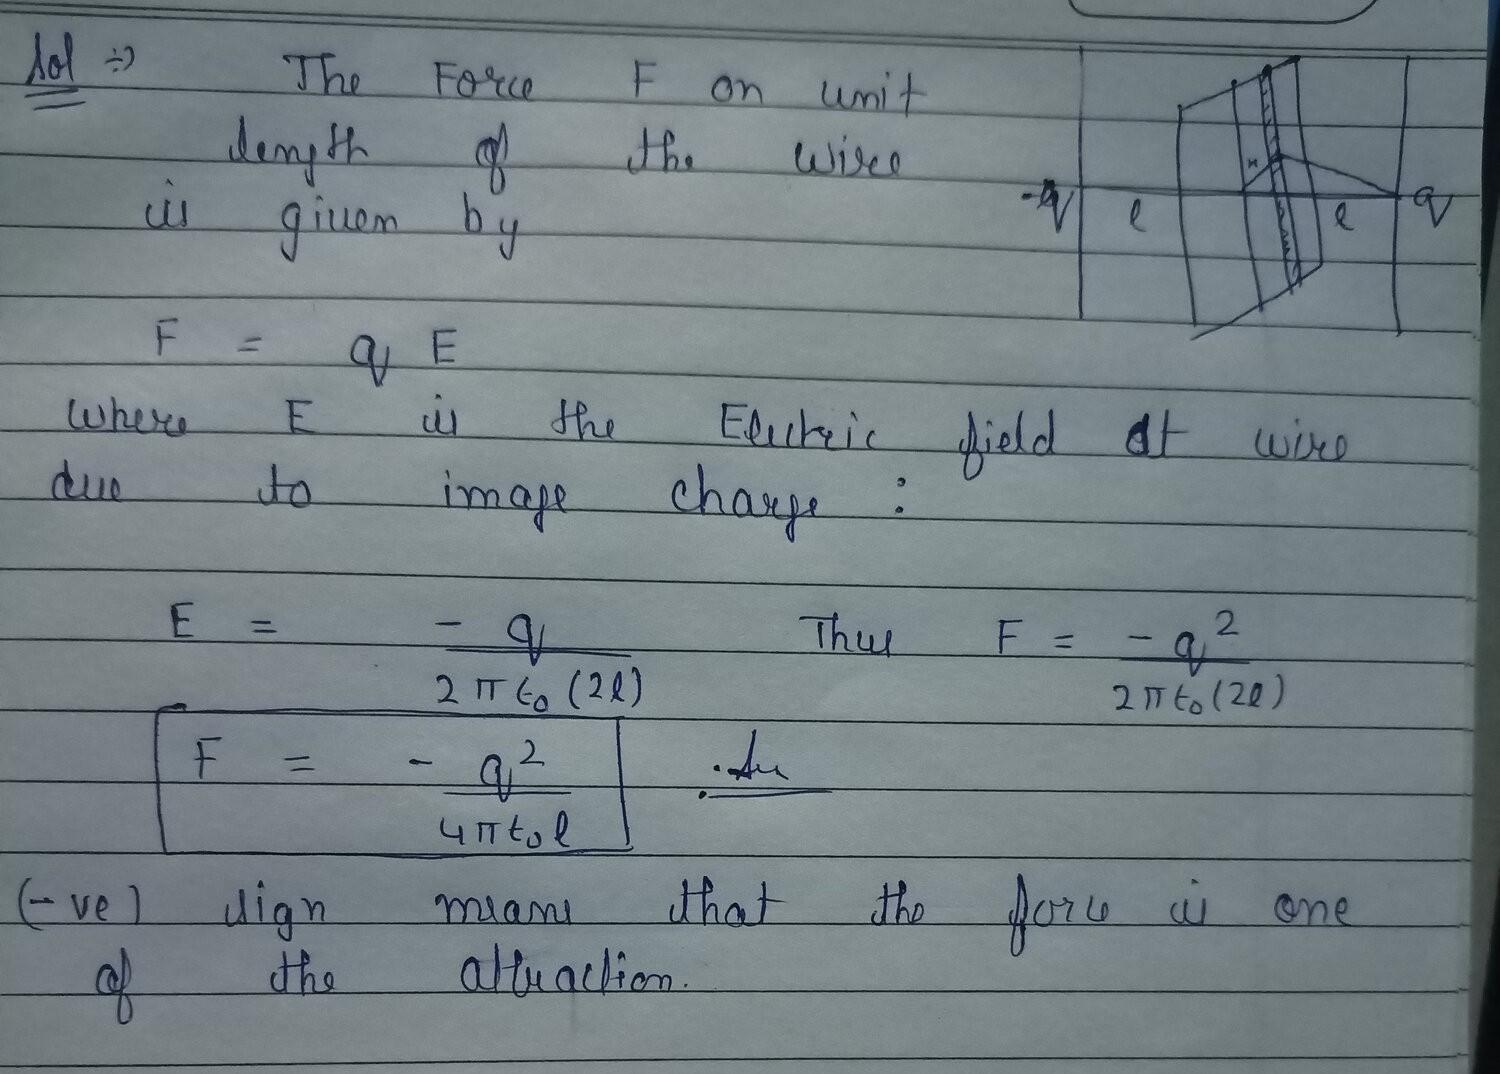 Sol ÷)
The Force F on unit
length of the wire
is given by
-q l x l q
F = q E
where E is the Electric field at wire
due to image charge :
E = - q / 2π ϵ₀ (2l) Thus F = - q² / 2π ϵ₀ (2l)
F = - q² / 4π ϵ₀ l . Ans
(-ve) sign means that the force is one
of the attraction.